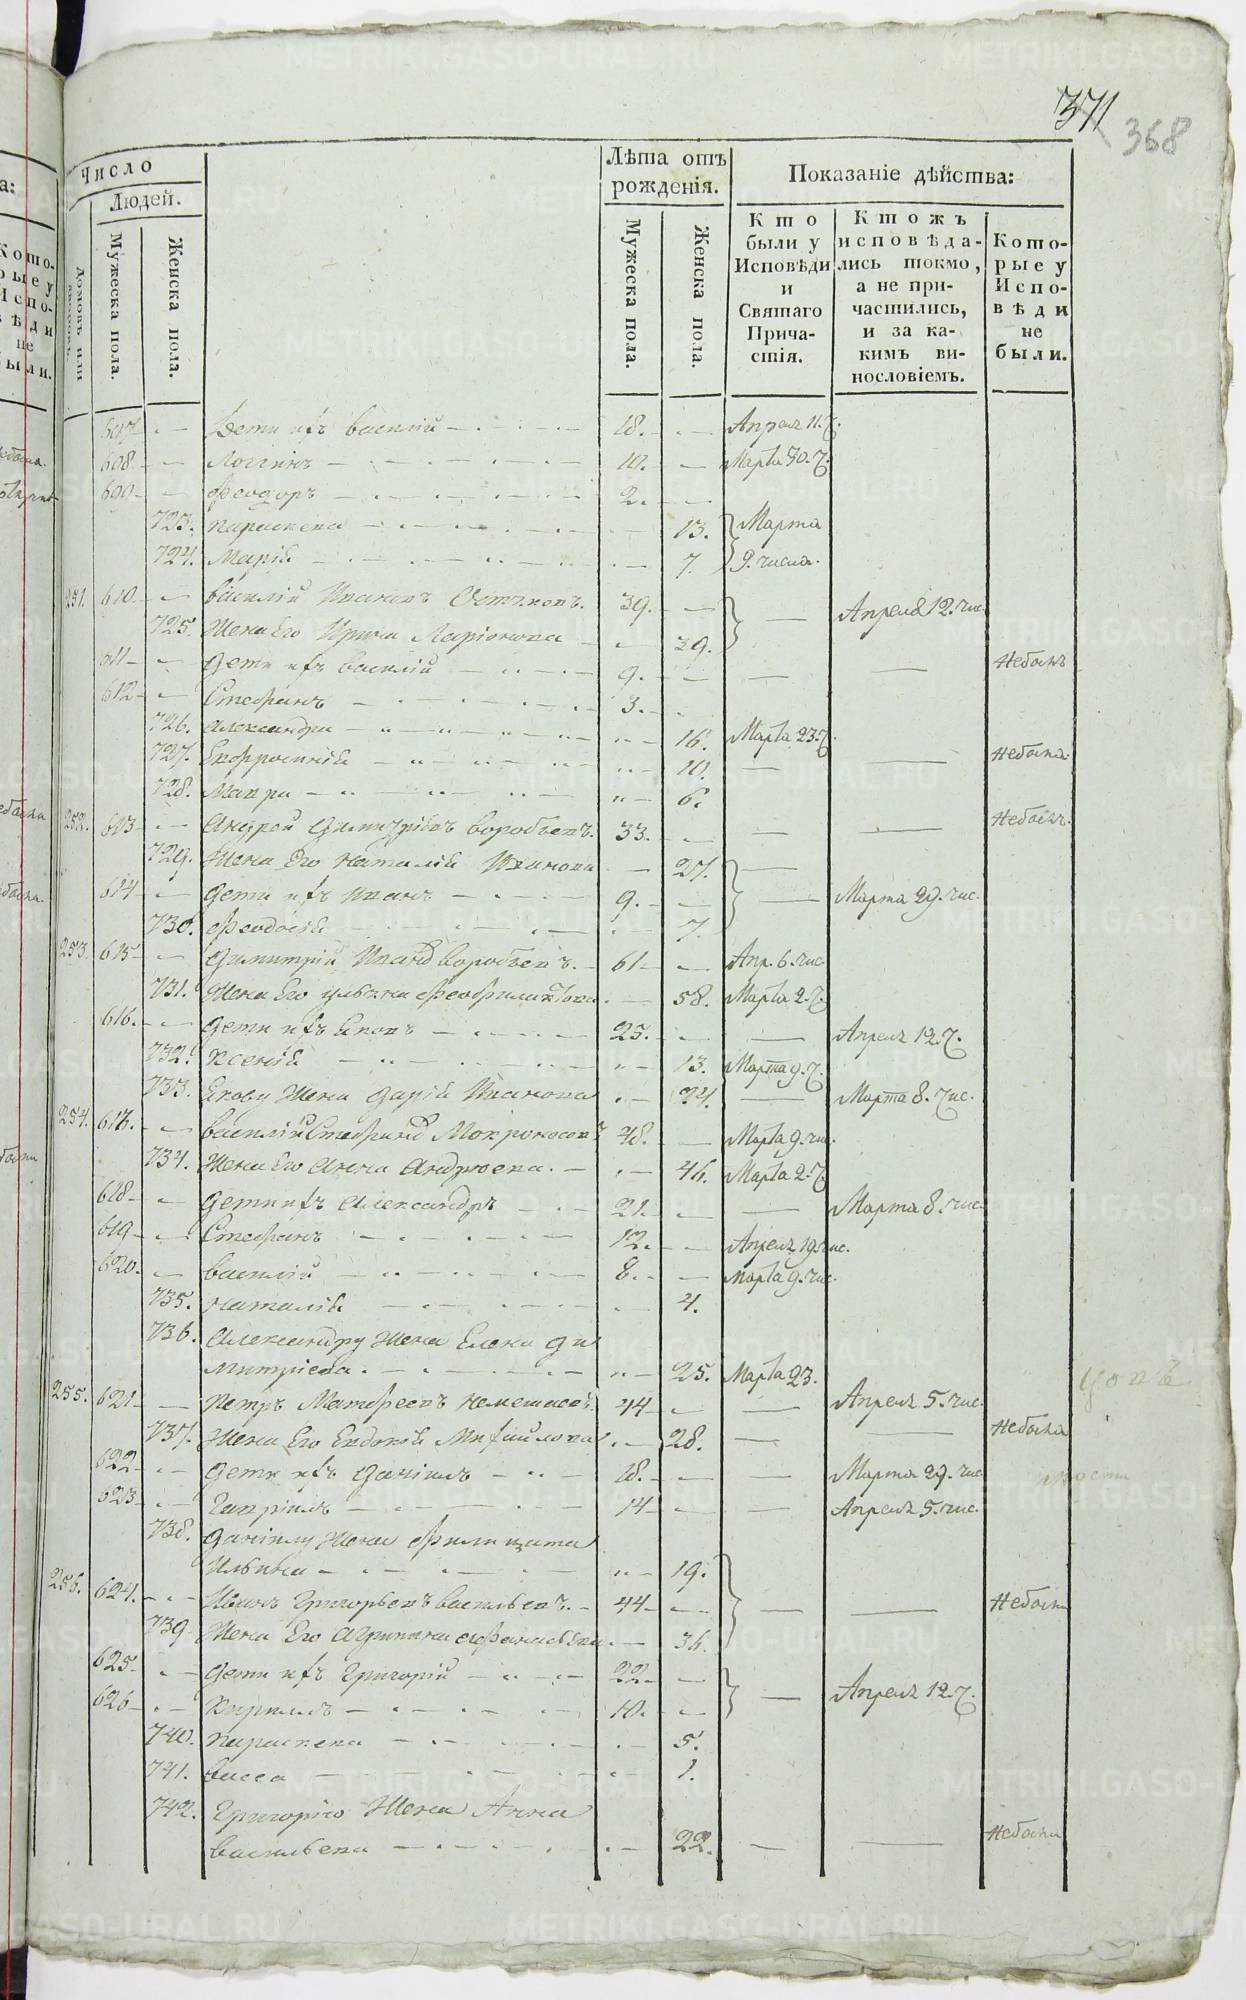 371
368
Число
Людей.
Домовъ или
Мужеска пола.
Женска пола.
Лѣта отъ рожденія.
Мужеска пола.
Женска пола.
Показаніе дѣйства:
Кто были у Исповѣди и Святаго Прича-стія.
Ктожъ исповѣда-лись токмо, а не при-частились, и за ка-кимъ ви-нословіемъ.
Кото-рые у Испо-вѣди не были.
607 Дети ихъ Василій 18. Апреля 11. ч.
608. Логгинъ 10. Марта 30. ч.
609 Феодоръ 2.
723. Параскева 13. Марта
724. Марія 7. 9. числа.
251. 610. Василій Ивановъ 39. Апреля 12. чис.
725. Жена Его Ирина Ларіонова 39.
611 Дети ихъ Василій 9. Небылъ
612 Стефанъ 3.
726. Александра 16. Марта 23. ч.
727. Евфросинія 10. Небыла
728. Мавра 6.
252. 613 Андрей Димитріевъ Воробьевъ. 33. Небылъ.
729. Жена Его Наталія Иванова 27.
614 Дети ихъ Иванъ 9. Марта 29. чис.
730. Феодосія 7.
253. 615 Димитрій Ивановъ Воробьевъ. 61 Апр. 6. чис
731. Жена Его Ульяна Феофилактова 58. Марта 2. ч.
616. Дети ихъ Яковъ 25. Апреля 12. ч.
732. Ксенія 13. Марта 9. ч.
733. Якову Жена Дарія Иванова 24. Марта 8. чис.
254. 617. Василій Стефановъ Мокроносовъ 48. Марта 9. чис.
734. Жена Его Анна Андреева. 46. Марта 2. ч.
618 Дети ихъ Александръ 21. Марта 8. чис.
619 Стефанъ 12. Апреля 19. чис.
620. Василій 8. Марта 9. чис.
735. Наталія 4.
736. Александру Жена Елена Ди
митріева. 25. Марта 23.
255. 621 Петръ Матфеевъ 44 Апреля 5. чис.
737. Жена Его Евдокія Михайлова 28. Небыла
622 Дети ихъ Даніилъ 18. Марта 29. чис
623 Гавріилъ 14 Апреля 5. чис.
738. Даніилу Жена Филицата
Ильина 19.
256. 624. Иванъ Григорьевъ Васильевъ. 44 Небыли
739 Жена Его Агрипина Афанасьева 36.
625. Дети ихъ Григорій 22 Апреля 12. ч.
626 Кириллъ 10.
740. Параскева 5.
741. Васса 1.
742. Григорію Жена Анна
Васильева 22. Небыла